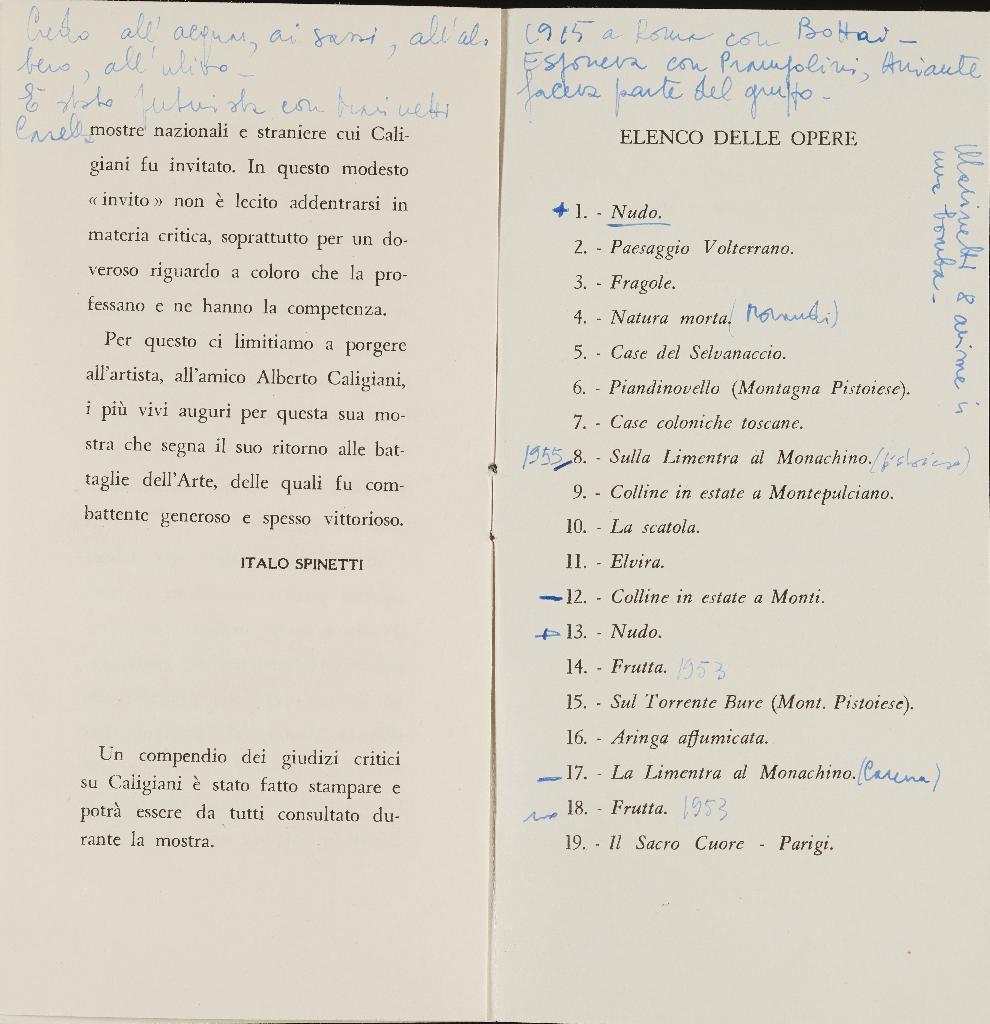 Credo all'acqua, ai sassi, all'al-
bero, all'ulivo -
È stato futurista con Marinetti
mostre nazionali e straniere cui Cali-
giani fu invitato. In questo modesto
«invito» non è lecito addentrarsi in
materia critica, soprattutto per un do-
veroso riguardo a coloro che la pro-
fessano e ne hanno la competenza.
Per questo ci limitiamo a porgere
all'artista, all'amico Alberto Caligiani,
i più vivi auguri per questa sua mo-
stra che segna il suo ritorno alle bat-
taglie dell'Arte, delle quali fu com-
battente generoso e spesso vittorioso.
ITALO SPINETTI
Un compendio dei giudizi critici
su Caligiani è stato fatto stampare e
potrà essere da tutti consultato du-
rante la mostra.
1915 a Roma con Bottai -
Esponeva con Prampolini, Aniante
faceva parte del gruppo -
Marinetti 8 anime in
una bomba -
ELENCO DELLE OPERE
+ 1. - Nudo.
2. - Paesaggio Volterrano.
3. - Fragole.
4. - Natura morta. (Morandi)
5. - Case del Selvanaccio.
6. - Piandinovello (Montagna Pistoiese).
7. - Case coloniche toscane.
1955 8. - Sulla Limentra al Monachino. (pistoiese)
9. - Colline in estate a Montepulciano.
10. - La scatola.
11. - Elvira.
- 12. - Colline in estate a Monti.
+ 13. - Nudo.
14. - Frutta. 1953
15. - Sul Torrente Bure (Mont. Pistoiese).
16. - Aringa affumicata.
- 17. - La Limentra al Monachino. (Carena)
18. - Frutta. 1953
19. - Il Sacro Cuore - Parigi.